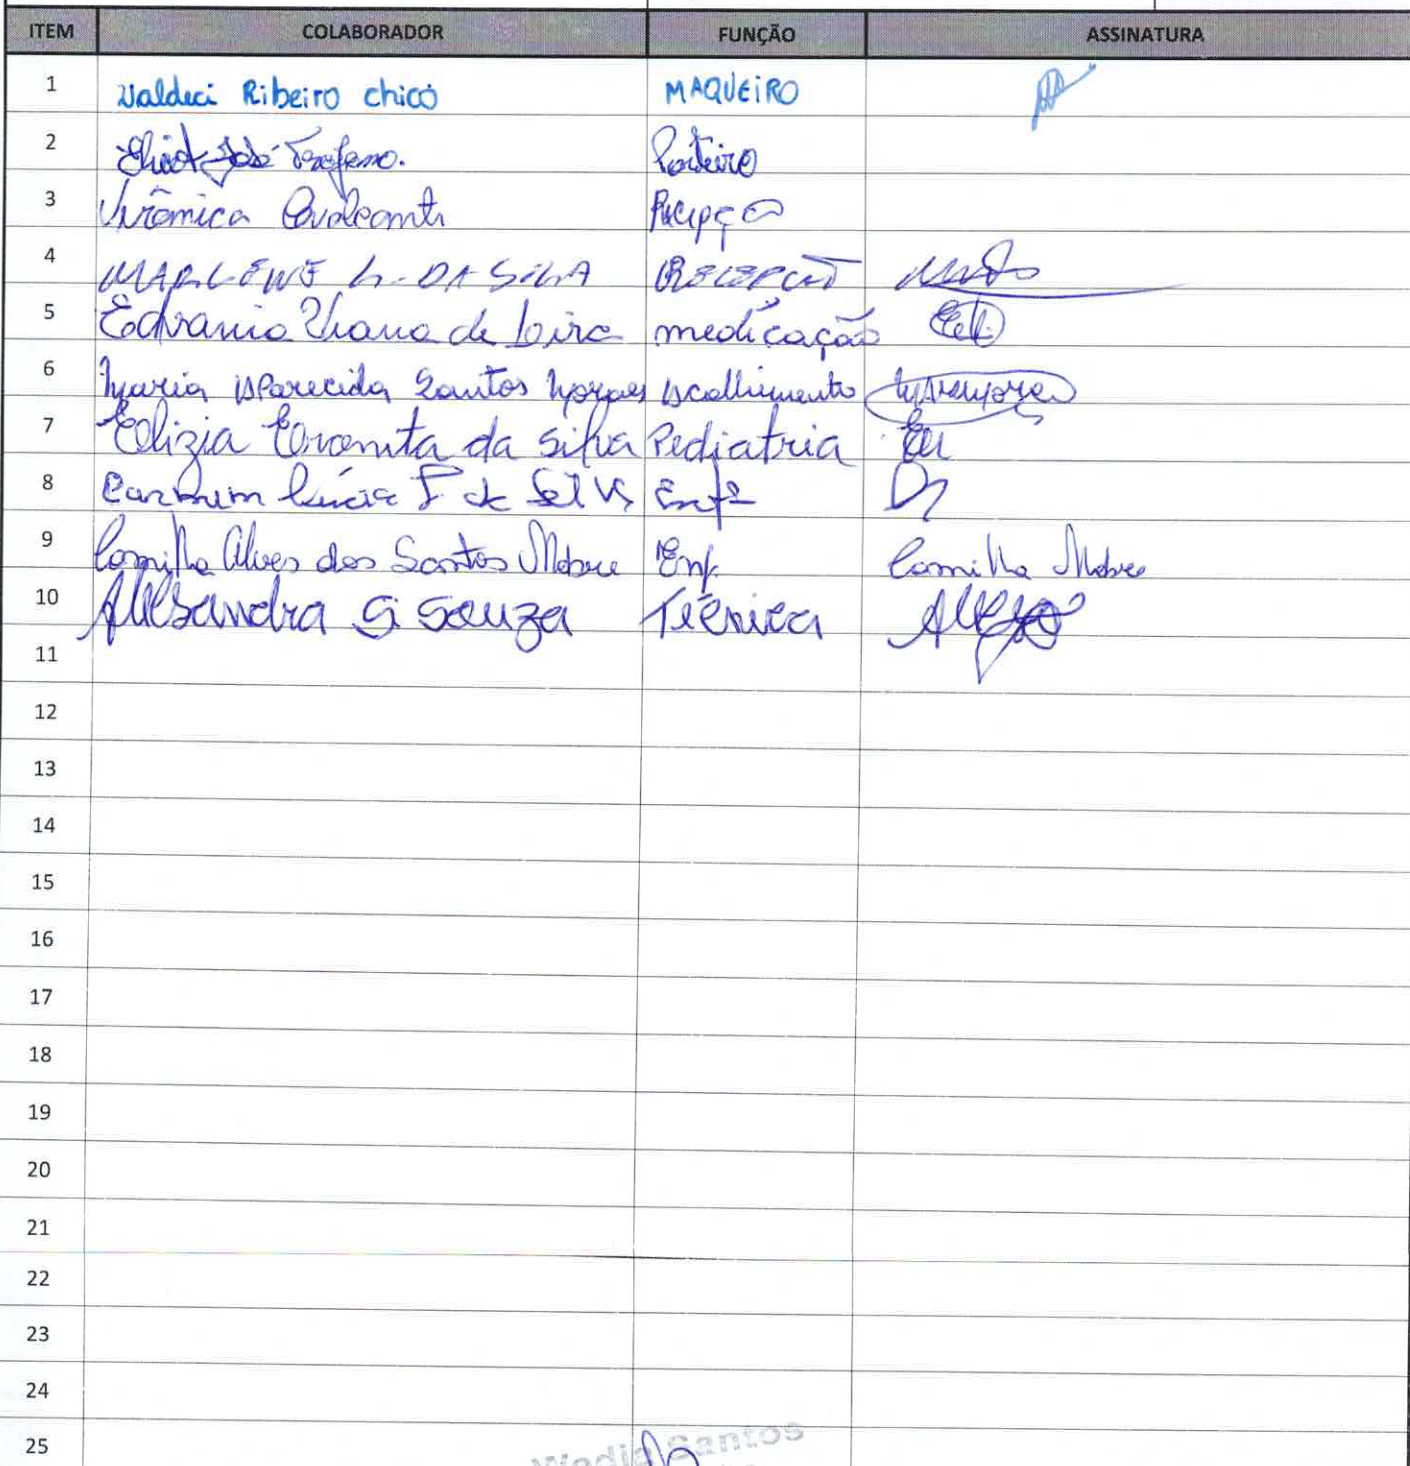 ITEM COLABORADOR FUNÇÃO ASSINATURA
1 Valdeci Ribeiro chico MAQUEIRO
2 José Porteiro
3 Verônica Cavalcanti Recepção
4 MARLENE L. DA SILVA RECEPÇÃO
5 Edvania Viana de Lira medicação
6 Maria Aparecida Santos Moraes Acolhimento
7 Elizia da Silva Pediatria
8 Carmem Lúcia F de Enfª
9 Camilla Alves dos Santos Enf. Camilla
10 Alessandra S Souza Técnica
11
12
13
14
15
16
17
18
19
20
21
22
23
24
25
Santos